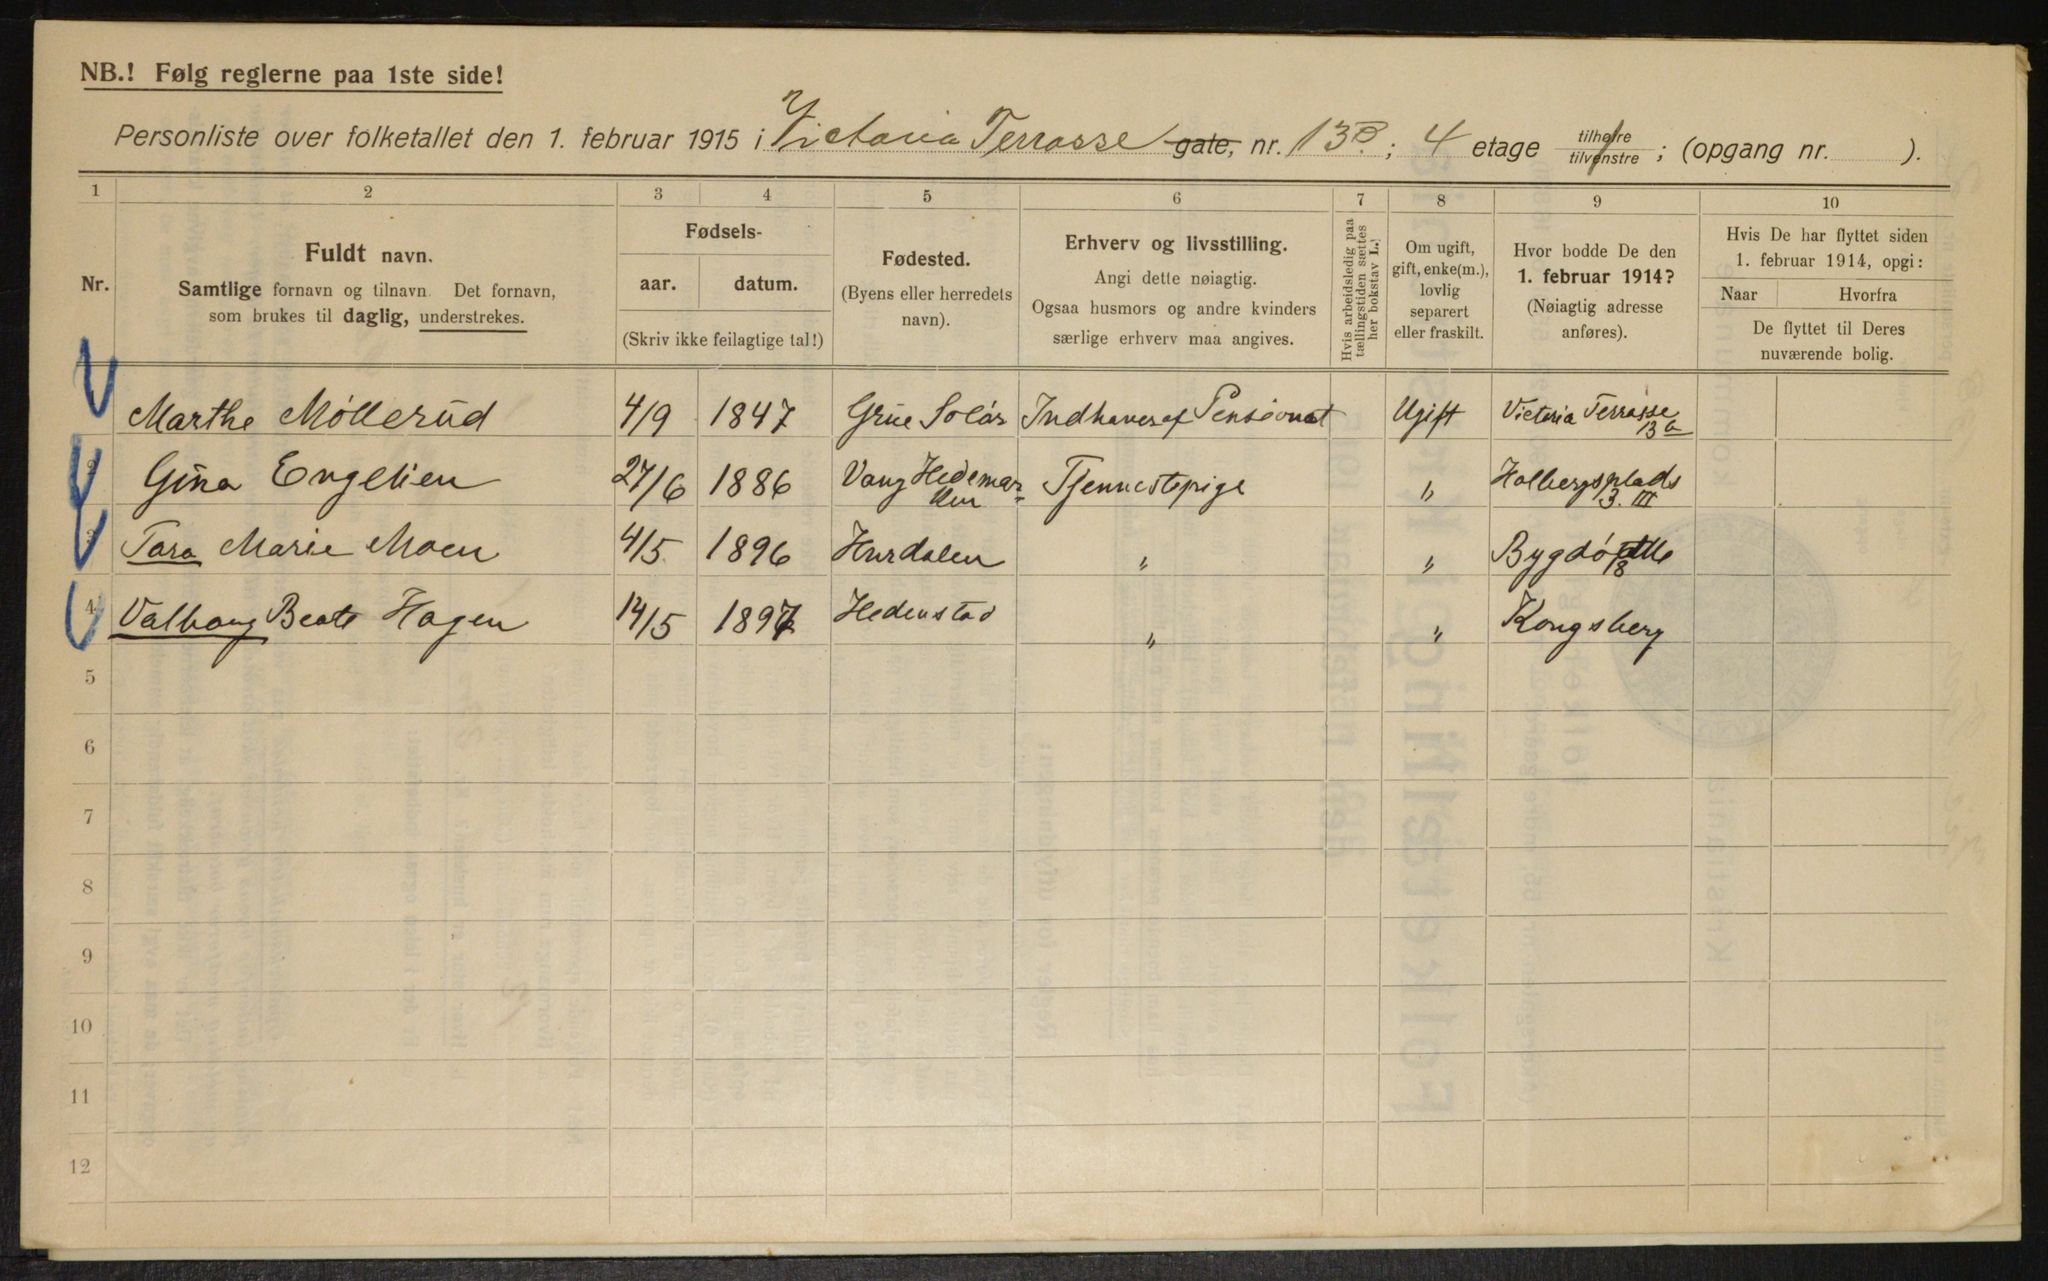 NB.! Følg reglerne paa 1ste side!
Personliste over folketallet den 1. februar 1915 i Victoria Terrasse gate, nr. 13B.; 4 etage tilhøire tilvenstre; (opgang nr. ).
1 2 3 4 5 6 7 8 9 10
Nr.
Fuldt navn.
Samtlige fornavn og tilnavn. Det fornavn,
som brukes til daglig, understrekes.
Fødsels-
aar. datum.
(Skriv ikke feilagtige tal!)
Fødested.
(Byens eller herredets
navn).
Erhverv og livsstilling.
Angi dette nøiagtig.
Ogsaa husmors og andre kvinders
særlige erhverv maa angives.
Hvis arbeidsledig paa
tællingstiden sættes
her bokstav L.!
Om ugift,
gift, enke(m.),
lovlig
separert
eller fraskilt.
Hvor bodde De den
1. februar 1914?
(Nøiagtig adresse
anføres).
Hvis De har flyttet siden
1. februar 1914, opgi:
Naar Hvorfra
De flyttet til Deres
nuværende bolig.
Marthe Möllerud 4/9 1847 Grue Solör Indhaver af Pensionat Ugift Victoria Terrasse
13 b
2 Gina Engelien 27/6 1886 Vang Hedemar- Tjenestepige " Holbergsplads
ken 3. III
3 Tara Marie Moen 4/5 1896 Hurdalen " " Bygdö Alle
18
4 Valborg Beate Hagen 14/5 1897 Hedenstad " " Kongsberg
5
6
7
8
9
10
11
12